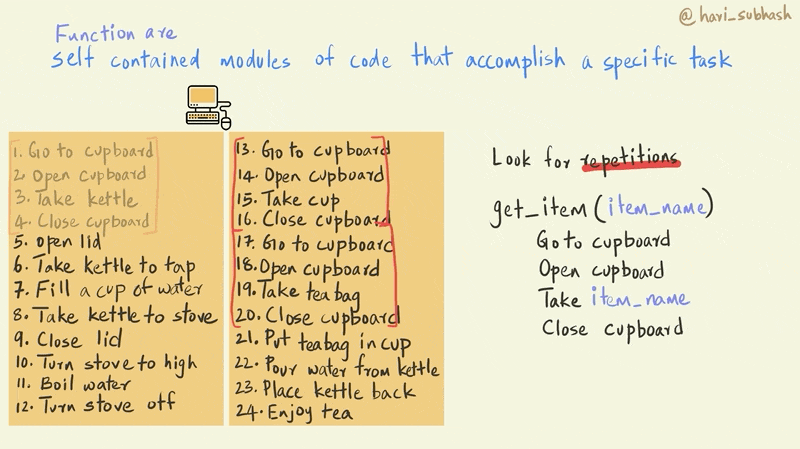 @hari_subhash
Function are
self contained modules of code that accomplish a specific task
1. Go to cupboard
2. Open cupboard
3. Take kettle
4. Close cupboard
5. open lid
6. Take kettle to tap
7. Fill a cup of water
8. Take kettle to stove
9. Close lid
10. Turn stove to high
11. Boil water
12. Turn stove off
13. Go to cupboard
14. Open cupboard
15. Take cup
16. Close cupboard
17. Go to cupboard
18. Open cupboard
19. Take teabag
20. Close cupboard
21. Put teabag in cup
22. Pour water from kettle
23. Place kettle back
24. Enjoy tea
Look for repetitions
get_item(item_name)
Go to cupboard
Open cupboard
Take item_name
Close cupboard